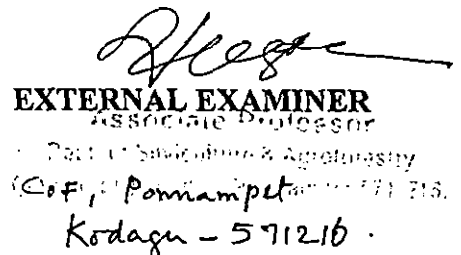 EXTERNAL EXAMINER
Associate Professor
Silviculture & Agroforestry
CoF, Ponnampet 571 216.
Kodagu - 571216.